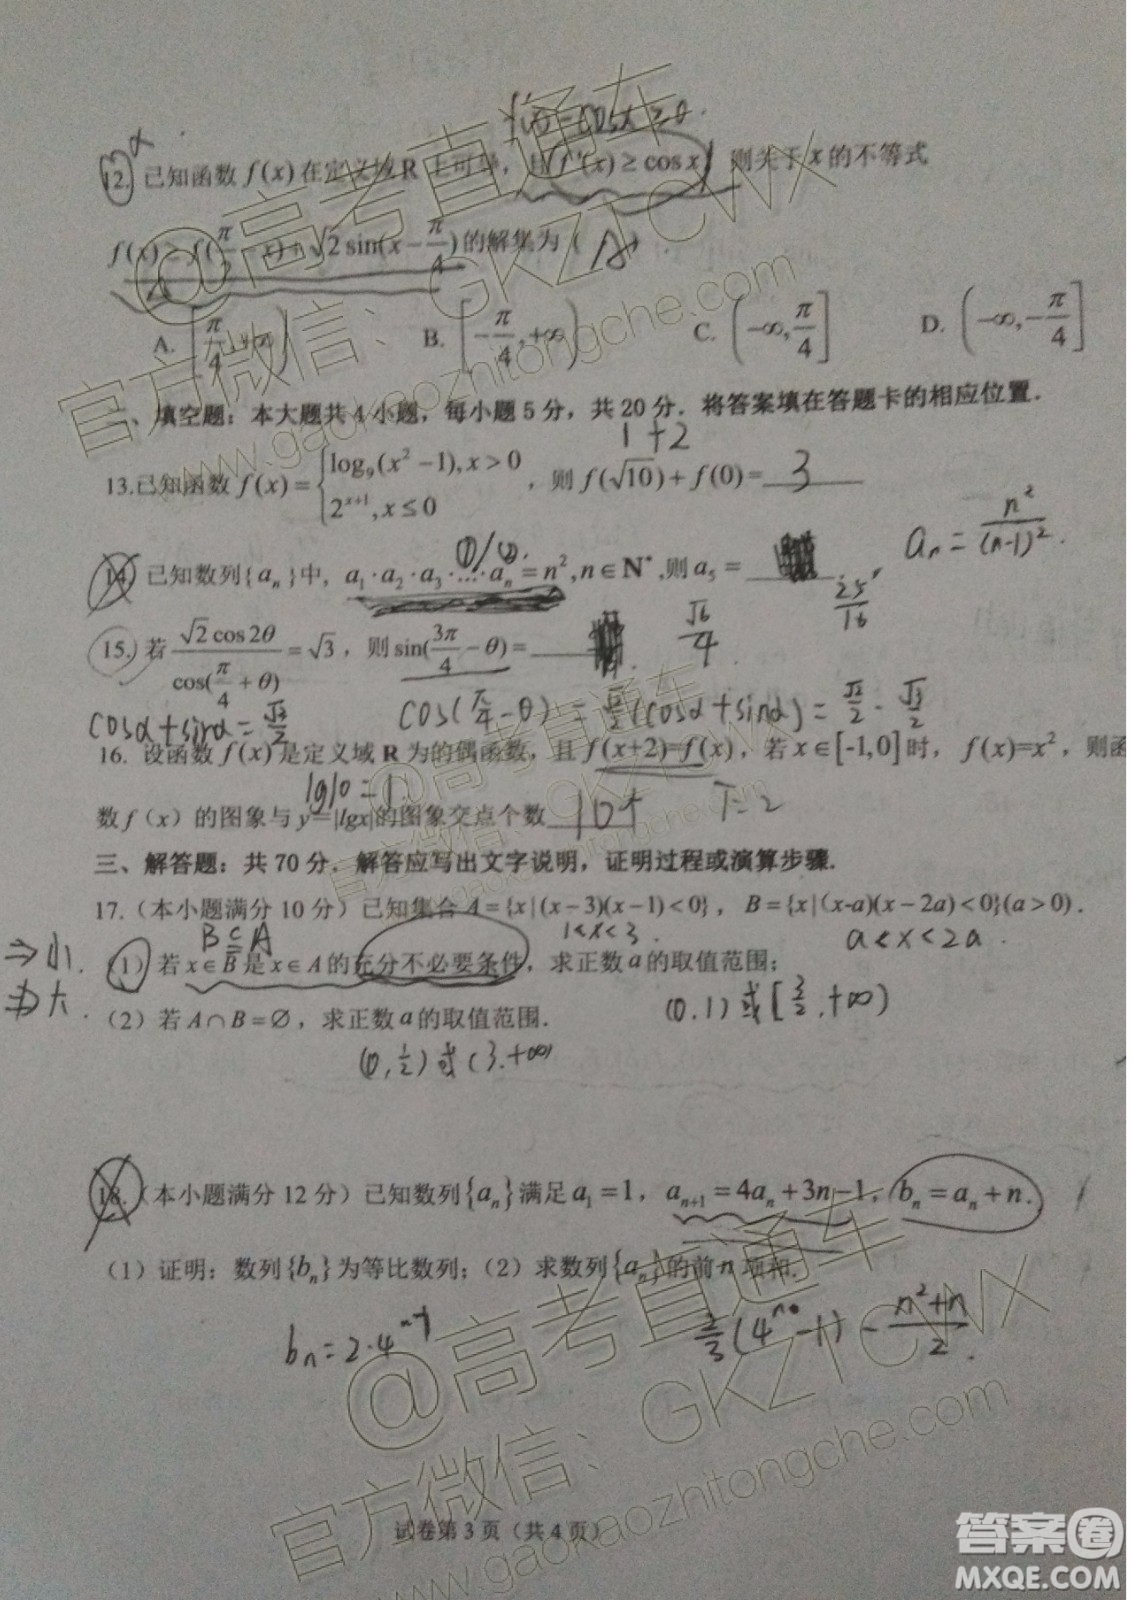 f'(x)-cosx≥0.
12. 已知函数 f(x)在定义域R上可导，且f'(x)≥cosx，则关于x的不等式
f(x)≥f(π/2-x)+√2sin(x-π/4)的解集为（ A ）
A. [π/4,+∞) B. [-π/4,+∞) C. (-∞,π/4] D. (-∞,-π/4]
二、填空题：本大题共4小题，每小题5分，共20分．将答案填在答题卡的相应位置．
1+2
13.已知函数 f(x)={log₉(x²-1),x>0 2^(x+1),x≤0 ，则 f(√10)+f(0)= 3
aₙ=n²/(n-1)².
①/②.
14. 已知数列{aₙ}中，a₁·a₂·a₃·...·aₙ=n²,n∈N*,则a₅=
25/16
15. 若 √2cos2θ/cos(π/4+θ)=√3，则sin(3π/4-θ)= √6/4
cosα+sinα=√2/2 cos(π/4-θ)=√2/2(cosα+sinα)=√2/2·√3/2
16. 设函数 f(x)是定义域R为的偶函数，且 f(x+2)=f(x)，若x∈[-1,0]时，f(x)=x²，则函
lg10=1
数f（x）的图象与y=|lgx|的图象交点个数 10个 T=2
三、解答题：共70分．解答应写出文字说明，证明过程或演算步骤．
17.（本小题满分10分）已知集合A={x|(x-3)(x-1)<0}，B={x|(x-a)(x-2a)<0}(a>0)．
B⊆A 1<x<3. a<x<2a.
⇒小.（1）若x∈B是x∈A的充分不必要条件，求正数a的取值范围；
⇏大.（2）若A∩B=∅，求正数a的取值范围．
(0,1)或[3/2,+∞)
(0,1/2)或(3,+∞)
18.（本小题满分12分）已知数列{aₙ}满足a₁=1，aₙ₊₁=4aₙ+3n-1，bₙ=aₙ+n．
（1）证明：数列{bₙ}为等比数列；（2）求数列{aₙ}的前n项和．
bₙ=2·4ⁿ⁻¹ 2/3(4ⁿ-1)-(n²+n)/2.
试卷第3页（共4页）
@高考直通车
官方微信、GKZTCWX
www.gaokaozhitongche.com
@高考直通车
官方微信、GKZTCWX
www.gaokaozhitongche.com
@高考直通车
官方微信、GKZTCWX
www.gaokaozhitongche.com
答案圈
MXQE.COM